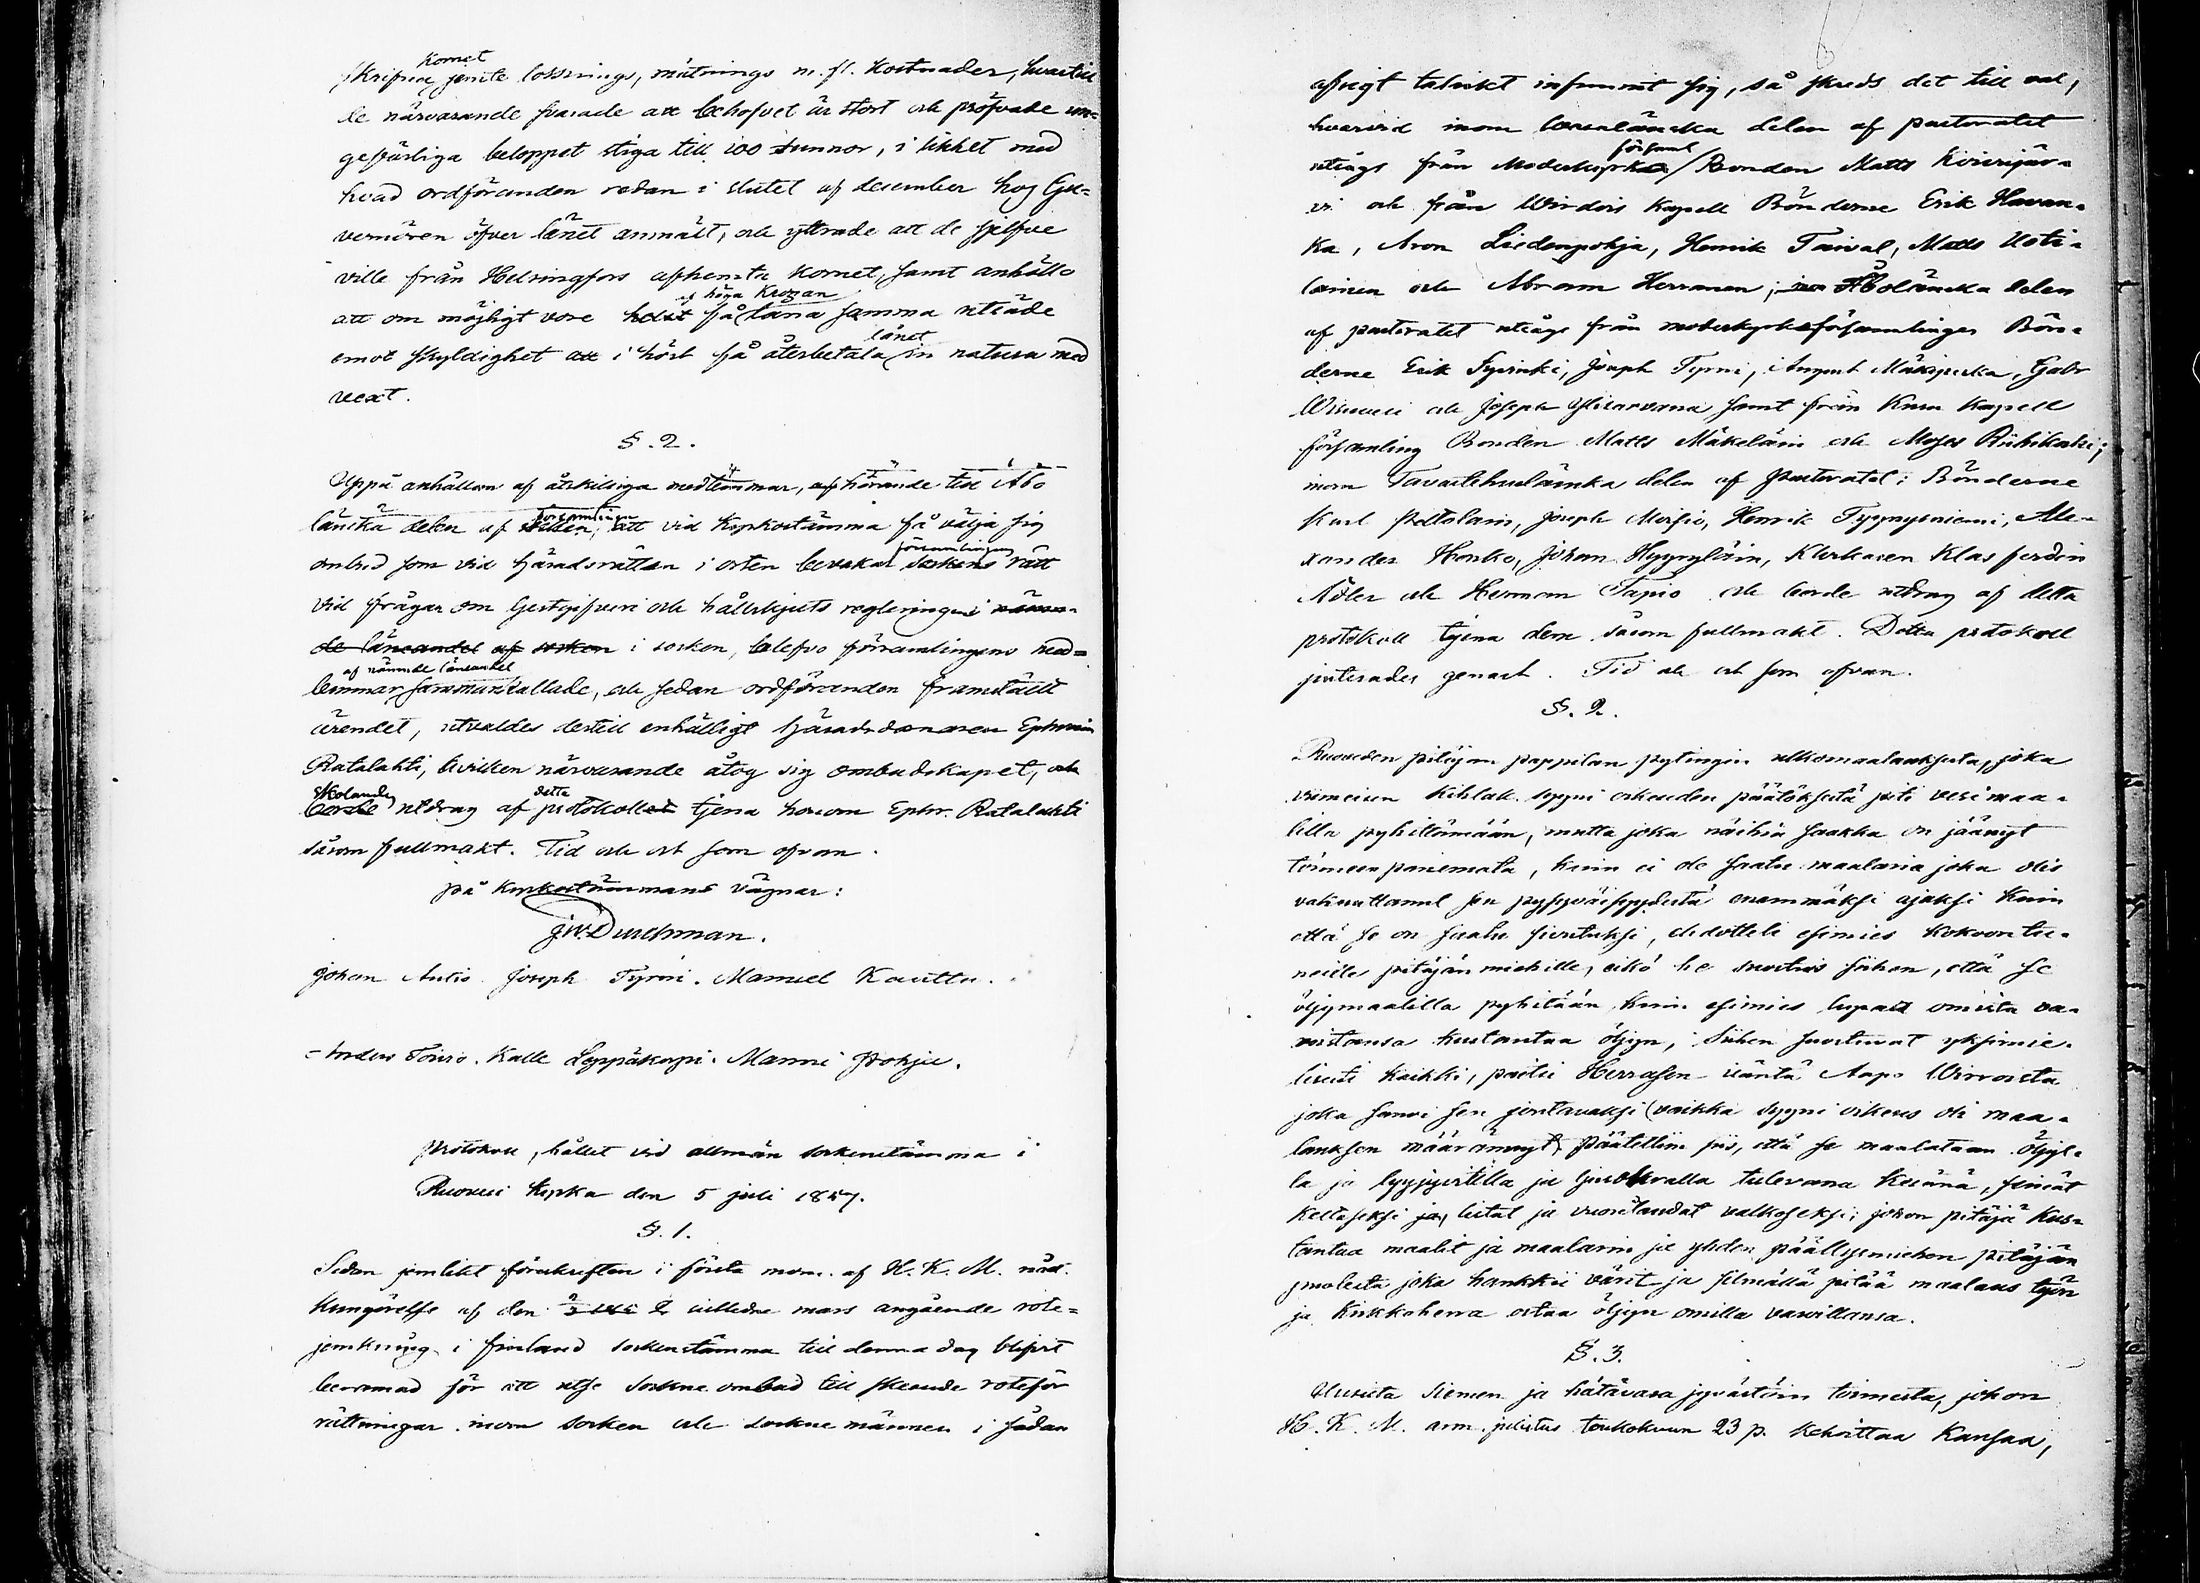 kornet
skrifna jemte lossnings, mätnings m. fl. kostnader, hvartill
de närvarande svarade att behofvet är stort och pröfvade un-
gefärliga beloppet stiga till 100 tunnor, i likhet med
hvad ordföranden redan i slutet af december hos Gu-
vernören öfver länet anmält, och yttrade att de sjelfve
ville från Helsingfors afhemta kornet, samt anhålla
af höga Kronan
att om möjligt vore helst få låna samma utsäde
lånet
emot skyldighet att i höst få återbetala in natura med
vext.
§. 2.
Uppå anhållan af åtskilliga medlemmar, hörande till Åbo
församlingen
länska delen af socken, att vid kyrkostämma få välja sig
församlingens
ombud som vid häradsrätten i orten bevakar sockens rätt
vid frågar om gestgifveri och hållskjuts regleringen i nämn-
de länsandel af socken i socken, blefvo församlingens med-
af nämnde länsandel
lemmar sammankallade, och sedan ordföranden framställt
ärendet, utvaldes dertill enhälligt häradsdomaren Ephraim
Ratalahti, hvilken närvarande åtog sig ombudskapet, och
skolande detta
borde utdrag af protokollet tjena honom Ephr. Ratalahti
såsom fullmakt. Tid och ort som ofvan.
på kyrkostämmans vägnar:
J.W. Durchman.
Johan Antio. Joseph Tyrni. Manuel Kauttu.
Anders Toisro. Kalle Leppäkorpi. Manni Pohja.
Protokoll, hållet vid allmän sockenstämma i
Ruovesi kyrka den 5 juli 1857.
§. 1.
Sedan jemlikt föreskriften i första mom. af H. K. M. nåd.
kungörelse af den sistledne mars angående rote-
jemkning i Finland sockenstämma till denna dag blifvit
beramad för att utse sockne ombud till skeende roteför
rättningar inom socken och sockne männen i sådan
afsigt talrikt infunnit sig, så skreds det till val,
hvarvid inom wasaländska delen af pastoratet
församl
utsågs från Moderkyrko Bonden Matts Koverojär-
vi och från Virdois kapell Bönderne Erik Havan-
ka, Aron Liedenpohja, Henrik Taival, Matts Uoti-
lainen och Abram Herranen; Åboländska delen
af pastoratet utsågs från moderkyrkoförsamlingen Bön-
derne Erik Syvinki, Joseph Tyrni, August Mäkipeska, Gabr
Wisuvesi och Joseph Ylisarvana samt från Kuru kapell
församling Bonden Matts Mäkeläin och Moses Riihikoski;
inom Tavastehuslänska delen af Pastoratet; Bönderne
Karl Peltolain, Joseph Moisio, Henrik Tyypyyniemi, Ale-
xander Honko, Johan Hyyryläin, Klockaren Klas ferdin
Adler och Herman Tapio och borde utdrag af detta
protokoll tjena dem såsom fullmakt. Detta protokoll
justerades genast. Tid och ort som ofvan.
§. 2.
Ruoveden pitäjän pappilan pytingin ulkomaalauksesta, joka
viimeisen kihlak. syyni oikeuden päätöksestä piti vesimaa-
lilla pyhittämään, mutta joka näihin saakka on jäänyt
toimeen panemata, kuin ei ole saatu maalaria joka olis
vakuuttanut sen pysyväisyydestä enemmäksi ajaksi kuin
että se on saatu sivutuksi, ehdotteli esimies kokoontu-
neille pitäjän miehille, eikö he suostuis siihen, että se
öljymaalilla pyhitään, kuin esimies lupaa omista va-
roistansa kustantaa öljyn, Siihen suostuivat yksimie-
lisesti kaikki, paitsi Herrasen isäntä Aapo Virroista
joka sanoi sen joutavaksi (vaikka syyni oikeus oli maa-
lauksen määrännyt) Päätettiin siis, että se maalataan öljyl-
la ja lyyjyvitilla ja ljusokralla tulevana kesänä, seinät
keltaseksi ja listat ja vuorilaudat valkoseksi; johon pitäjä kus-
tantaa maalit ja maalarin ja yhden päällysmiehen pitäjän
puolesta joka hankkii värit ja silmällä pitää maalaus työn
ja kirkkoherra ostaa öljyn omilla varoillansa.
§. 3.
Uusista siemen ja hätävara jyvästöin toimesta, johon
H. K. M. arm. julistus toukokuun 23 p. kehoittaa Kansaa,